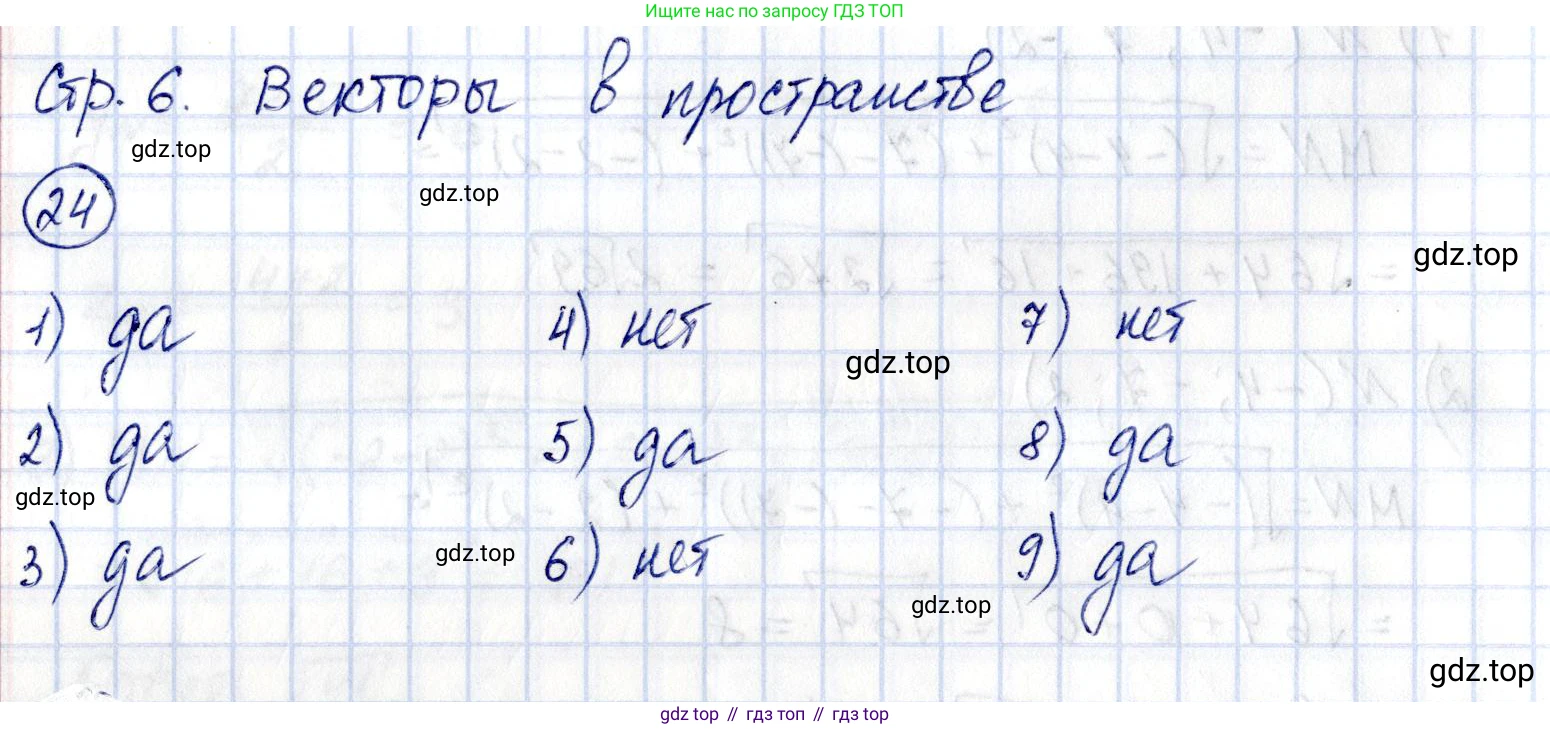 Ищите нас по запросу ГДЗ ТОП
Стр. 6. Векторы в пространстве
gdz.top
gdz.top
24
gdz.top
1) да 4) нет 7) нет
gdz.top
2) да 5) да 8) да
gdz.top
gdz.top
3) да 6) нет 9) да
gdz.top
gdz.top
gdz top // гдз топ // гдз top